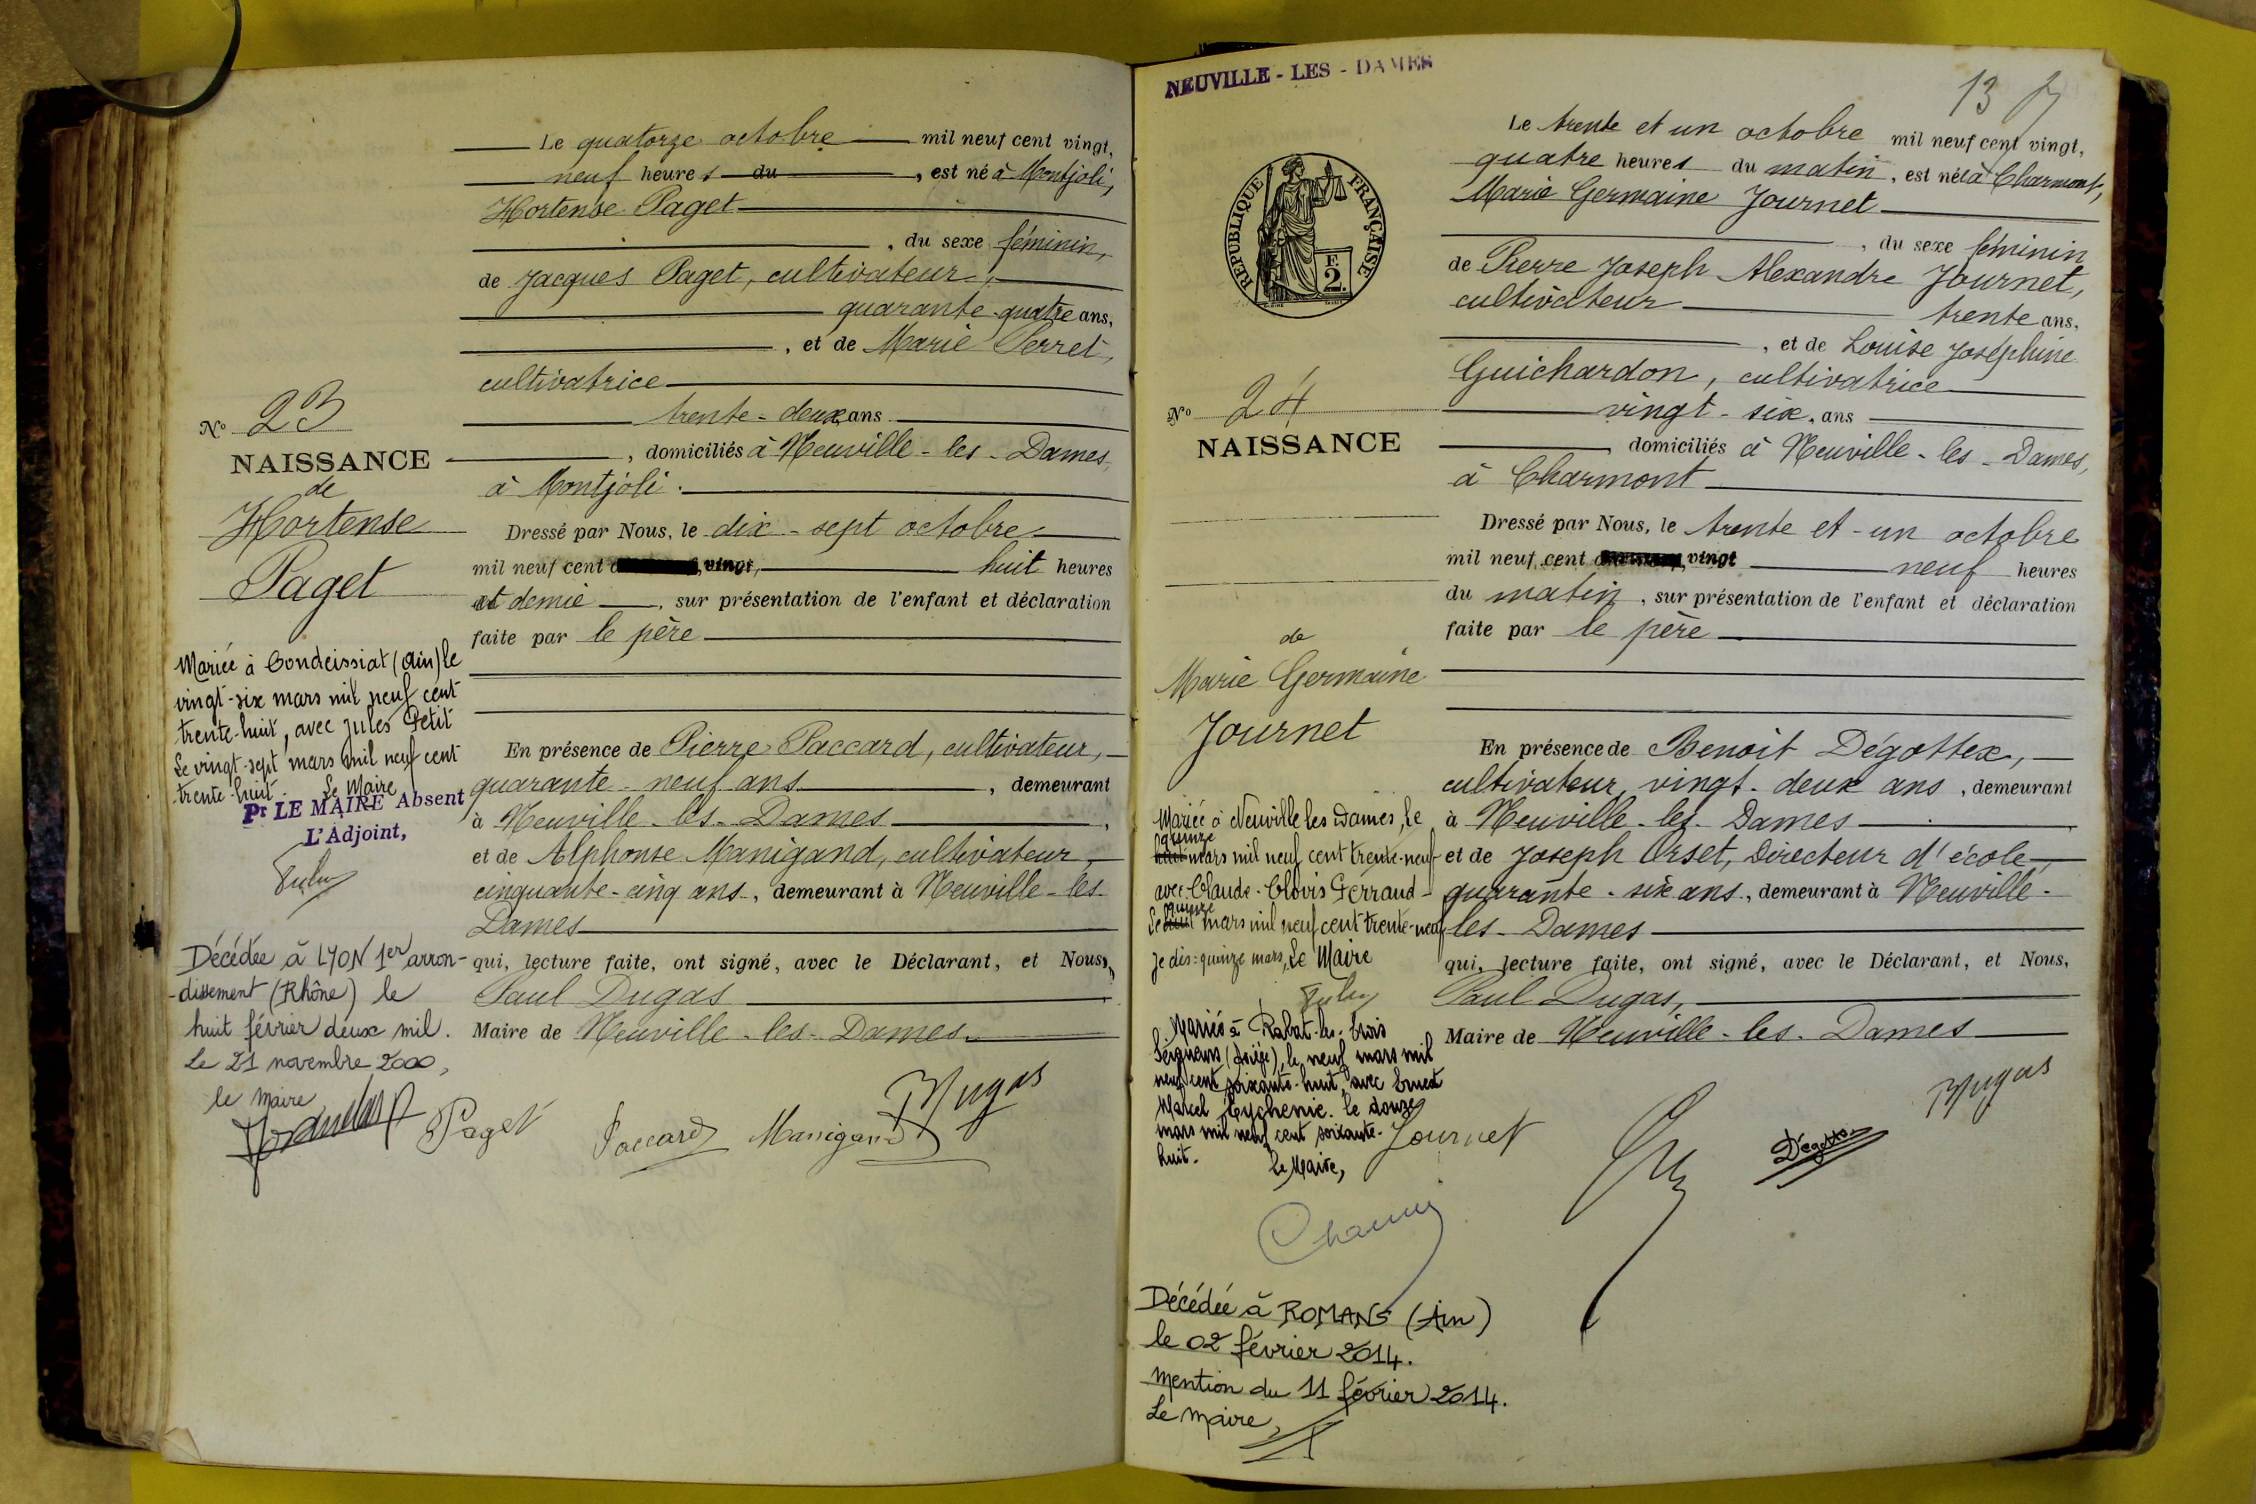 Le quatorze octobre mil neuf cent vingt,
neuf heures du , est né à Montjoli,
Hortense Paget
, du sexe féminin,
de Jacques Paget, cultivateur,
quarante-quatre ans,
, et de Marie Perret,
cultivatrice
trente-deux ans
, domiciliés à Neuville-les-Dames,
à Montjoli.
Dressé par Nous, le dix-sept octobre
mil neuf cent vingt, huit heures
et demie , sur présentation de l'enfant et déclaration
faite par le père
En présence de Pierre Paccard, cultivateur,
quarante-neuf ans , demeurant
à Neuville-les-Dames ,
et de Alphonse Manigand, cultivateur,
cinquante-cinq ans, demeurant à Neuville-les-
Dames
qui, lecture faite, ont signé, avec le Déclarant, et Nous,
Paul Dugas
Maire de Neuville-les-Dames
Paget Paccard Manigand Dugas
N° 23
NAISSANCE
de
Hortense
Paget
Mariée à Condeissiat (Ain) le
vingt-six mars mil neuf cent
trente-huit, avec Jules Petit
Le vingt-sept mars mil neuf cent
trente-huit. Le Maire
Pr LE MAIRE Absent
L'Adjoint,
Décédée à LYON 1er arron-
-dissement (Rhône) le
huit février deux mil.
Le 21 novembre 2000,
le Maire
NEUVILLE-LES-DAMES
13
RÉPUBLIQUE FRANÇAISE
F.
2.
Le trente et un octobre mil neuf cent vingt,
quatre heures du matin, est née à Charmont,
Marie Germaine Journet
, du sexe féminin
de Pierre Joseph Alexandre Journet,
cultivateur trente ans,
, et de Louise Joséphine
Guichardon, cultivatrice
vingt-six, ans
domiciliés à Neuville-les-Dames,
à Charmont
Dressé par Nous, le trente et-un octobre
mil neuf cent vingt neuf heures
du matin, sur présentation de l'enfant et déclaration
faite par le père
En présence de Benoit Dégottex,
cultivateur, vingt-deux ans, demeurant
à Neuville-les-Dames
et de Joseph Orset, Directeur d'école,
quarante-six ans, demeurant à Neuville-
les-Dames
qui, lecture faite, ont signé, avec le Déclarant, et Nous,
Paul Dugas,
Maire de Neuville-les-Dames
Journet Dégottex Dugas
N° 24
NAISSANCE
de
Marie Germaine
Journet
Mariée à Neuville les Dames, le
quinze
huit mars mil neuf cent trente-neuf
avec Claude-Clovis Ferraud
quinze
Le huit mars mil neuf cent trente-neuf
Je dis: quinze mars, Le Maire
Mariés à Rabat-les-trois
Seigneurs (Ariège), le neuf mars mil
neuf cent soixante-huit, avec Ernest
Marcel Eychenie. le douze
mars mil neuf cent soixante-
huit.
Le Maire,
Décédée à ROMANS (Ain)
le 02 février 2014.
mention du 11 février 2014.
Le Maire,